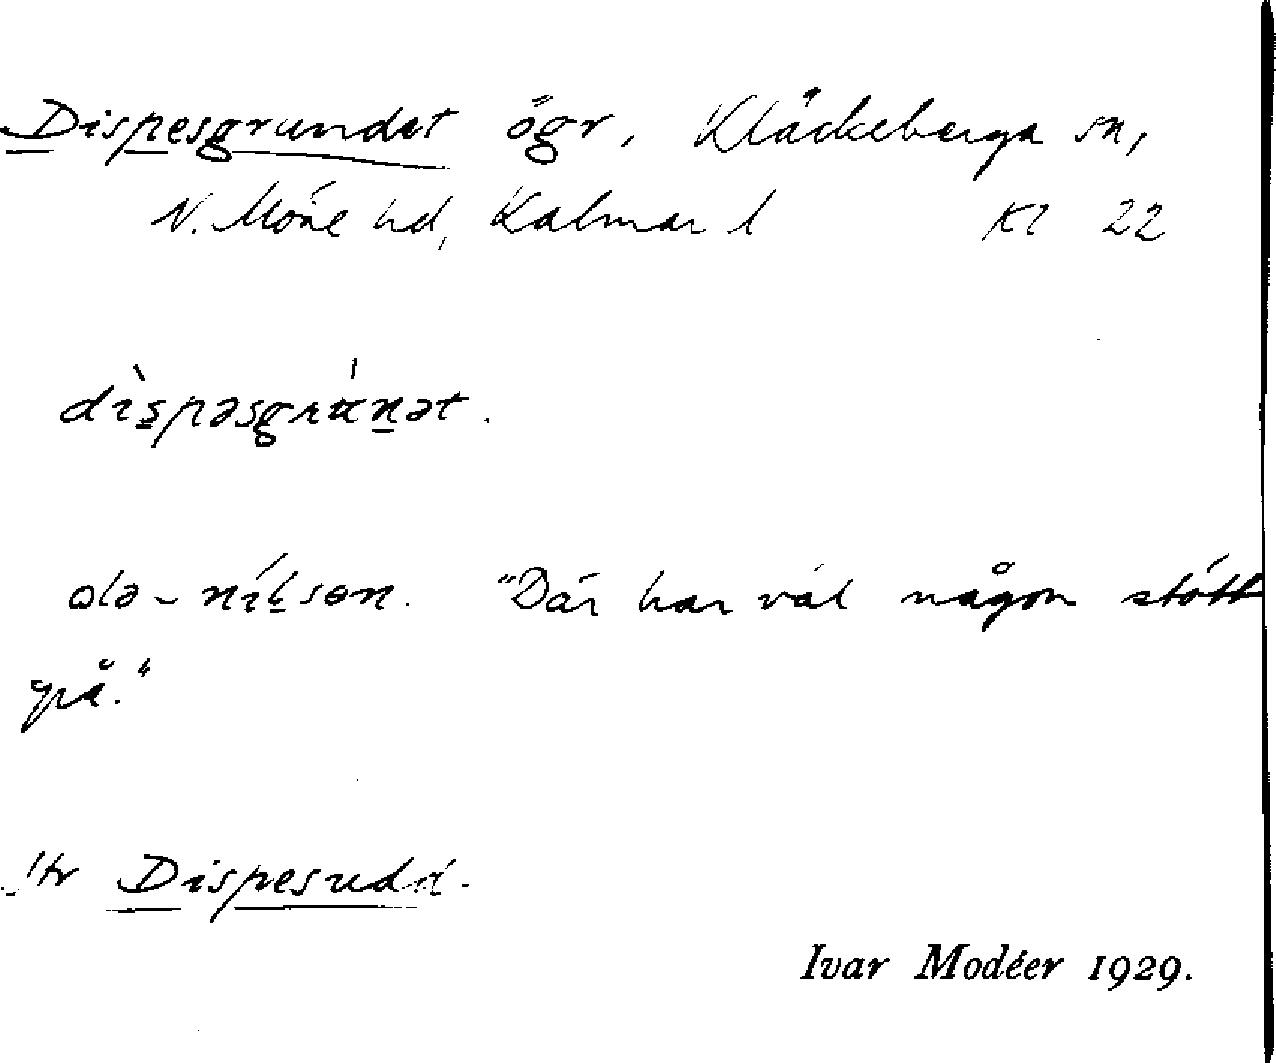 Dispesgrundet ögr, Kläckeberga sn,
N. Möre hd, Kalmar l Kl 22
dìspəsgrùnət.
olə-níksən. "Där har väl någon stött
på."
Jfr Dispesudd.
Ivar Modéer 1929.